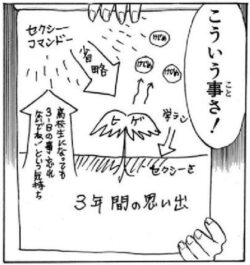 こういう事さ！
セクシー
コマンドー
省略
けびめ
けびめ
けびめ
ヒゲ
学ラン
セクシーさ
高校生になっても
3-1日の事、忘れ
ないでね！という気持ち
3年間の思い出